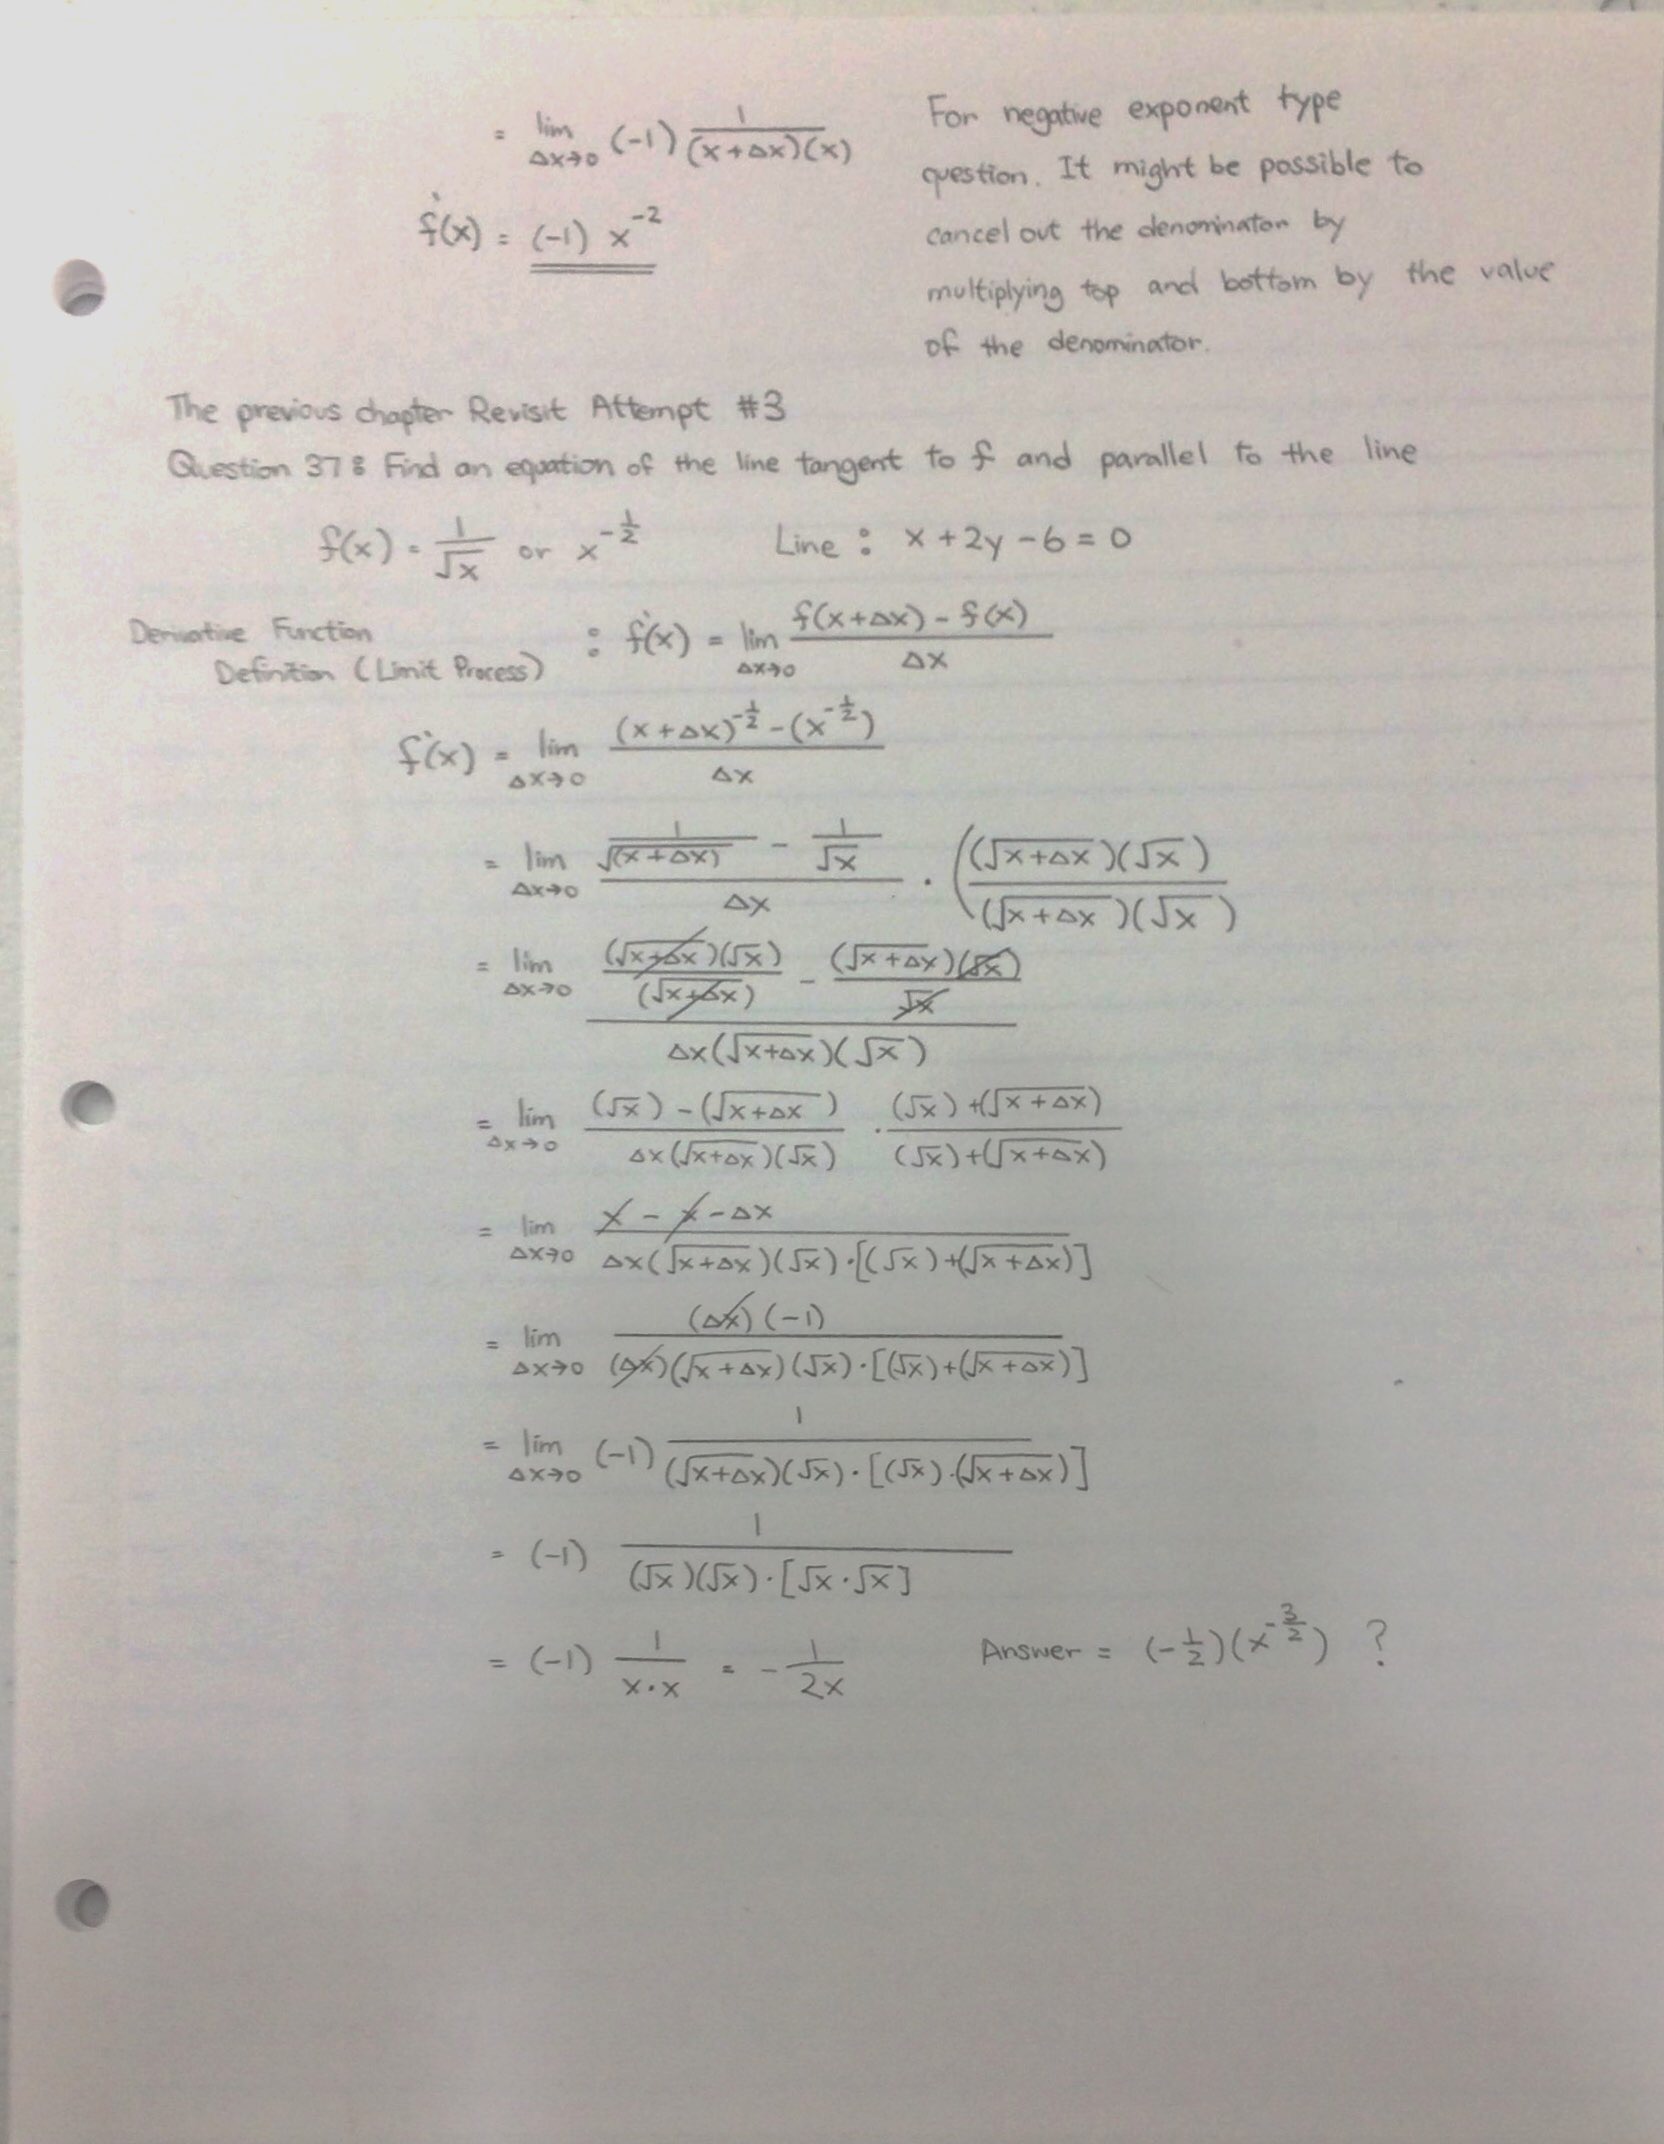 = lim Δx→0 (-1) 1/((x+Δx)(x))
f'(x) = (-1) x^-2
For negative exponent type
question. It might be possible to
cancel out the denominator by
multiplying top and bottom by the value
of the denominator.
The previous chapter Revisit Attempt #3
Question 37: Find an equation of the line tangent to f and parallel to the line
f(x) = 1/√x or x^-1/2 Line: x+2y-6=0
Derivative Function
Definition (Limit Process) : f'(x) = lim Δx→0 (f(x+Δx) - f(x))/Δx
f'(x) = lim Δx→0 ((x+Δx)^-1/2 - (x^-1/2))/Δx
= lim Δx→0 (1/√(x+Δx) - 1/√x)/Δx · ((√x+Δx)(√x)/(√x+Δx)(√x)
= lim Δx→0 ((√x+Δx)(√x)/(√x+Δx) - (√x+Δx)(√x)/√x)/(Δx(√x+Δx)(√x))
= lim Δx→0 ((√x) - (√x+Δx))/(Δx(√x+Δx)(√x)) · ((√x)+(√x+Δx))/((√x)+(√x+Δx))
= lim Δx→0 (x - x - Δx)/(Δx(√x+Δx)(√x)·[(√x)+(√x+Δx)])
= lim Δx→0 ((Δx)(-1))/((Δx)(√x+Δx)(√x)·[(√x)+(√x+Δx)])
= lim Δx→0 (-1) 1/((√x+Δx)(√x)·[(√x)·(√x+Δx)])
= (-1) 1/((√x)(√x)·[√x·√x])
= (-1) 1/(x·x) = -1/2x Answer = (-1/2)(x^-3/2) ?